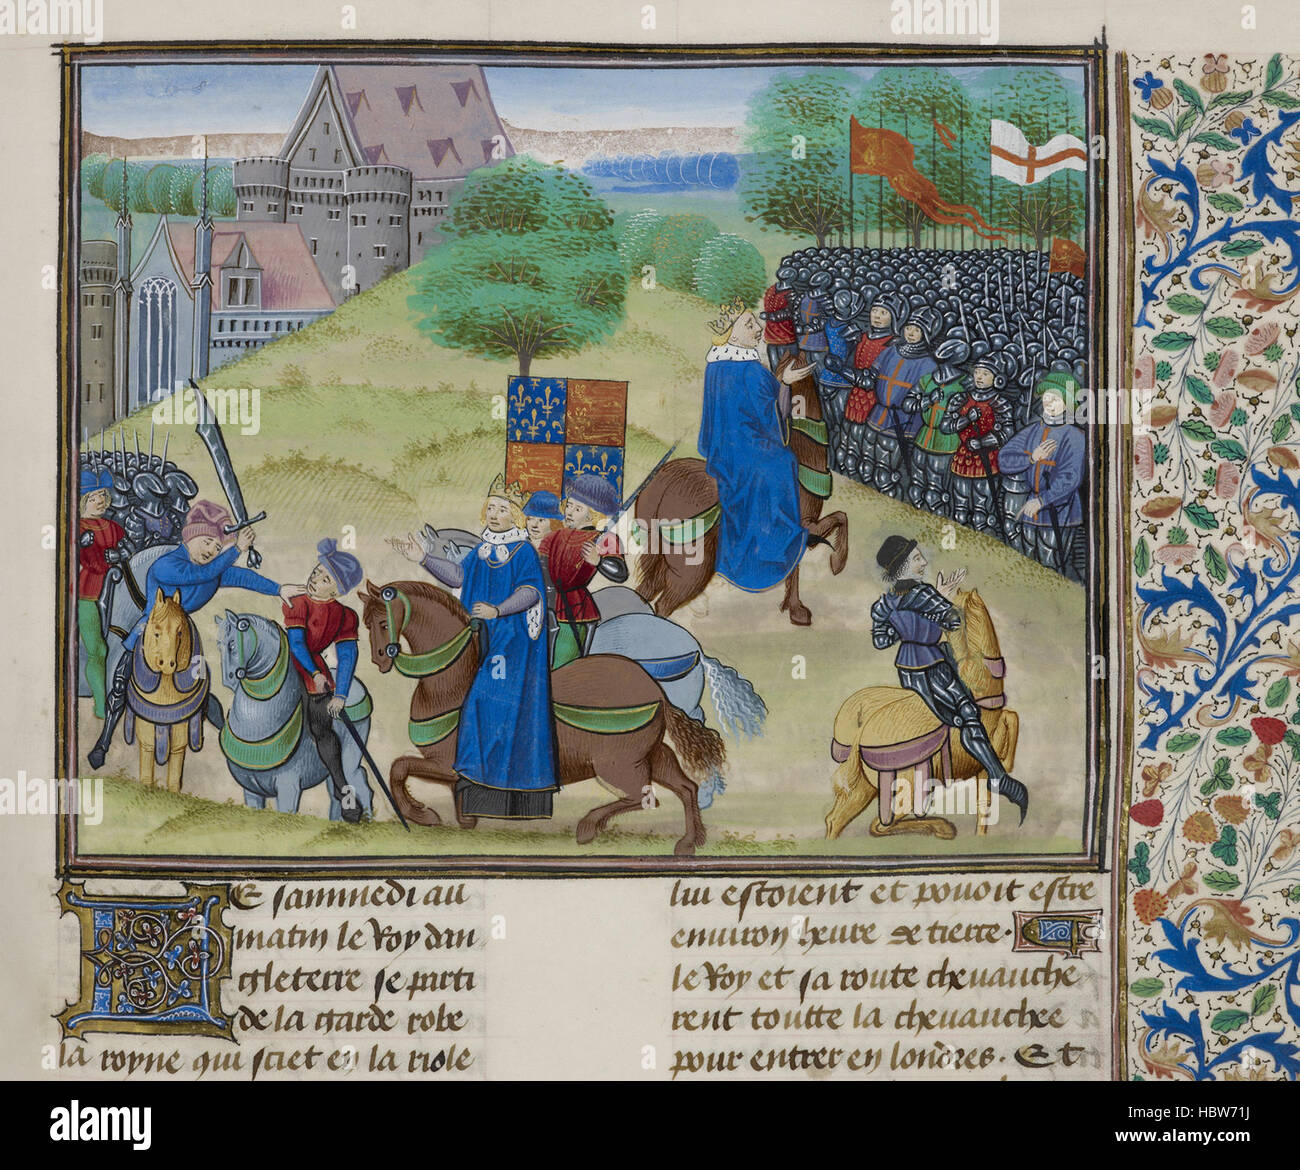 Le sammedi au
matin le Roy dan
gleterre se parti
de la garde robe
la royne qui sciet en la riole
luj estoient et pouoit estre
enuiron heure de tierce.
le Roy et sa route cheuauche
rent toutte la cheuauchee
pour entrer en londres. Et
alamy stock photo
HBW71J
www.alamy.com